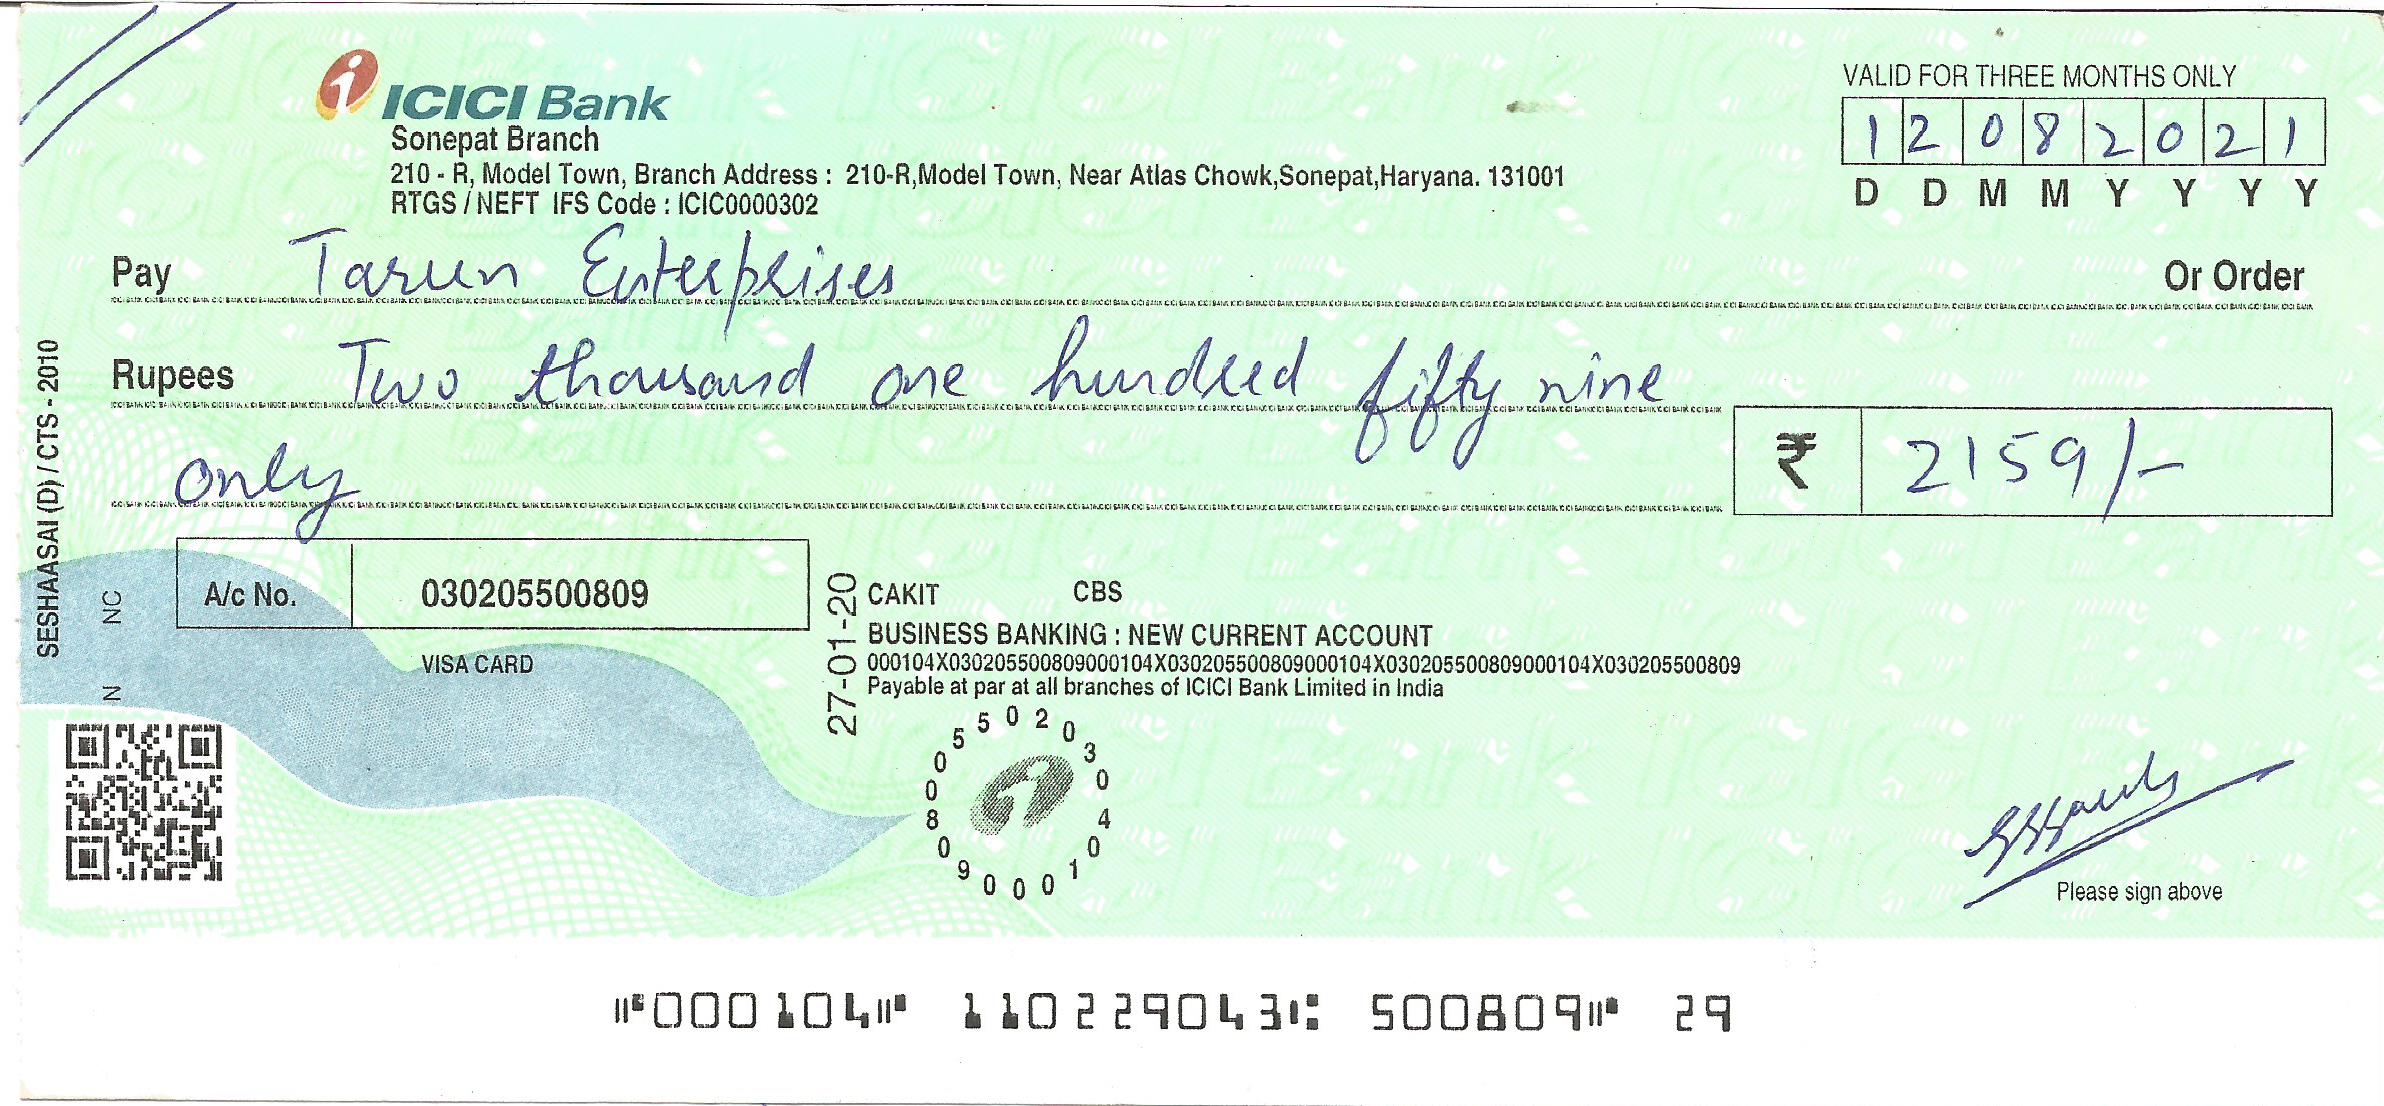 ICICI Bank
Sonepat Branch
210 - R, Model Town, Branch Address : 210-R,Model Town, Near Atlas Chowk,Sonepat,Haryana. 131001
RTGS / NEFT IFS Code : ICIC0000302
VALID FOR THREE MONTHS ONLY
12082021
D D M M Y Y Y Y
Pay Tarun Enterprises Or Order
Rupees Two thousand one hundred fifty nine
only
₹ 2159/-
SESHAASAI (D) / CTS - 2010
N NC
A/c No. 030205500809
VISA CARD
27-01-20
CAKIT CBS
BUSINESS BANKING : NEW CURRENT ACCOUNT
000104X030205500809000104X030205500809000104X030205500809000104X030205500809
Payable at par at all branches of ICICI Bank Limited in India
000104030205500809
Please sign above
⑈000104⑈ 110229043⑆ 500809⑈ 29